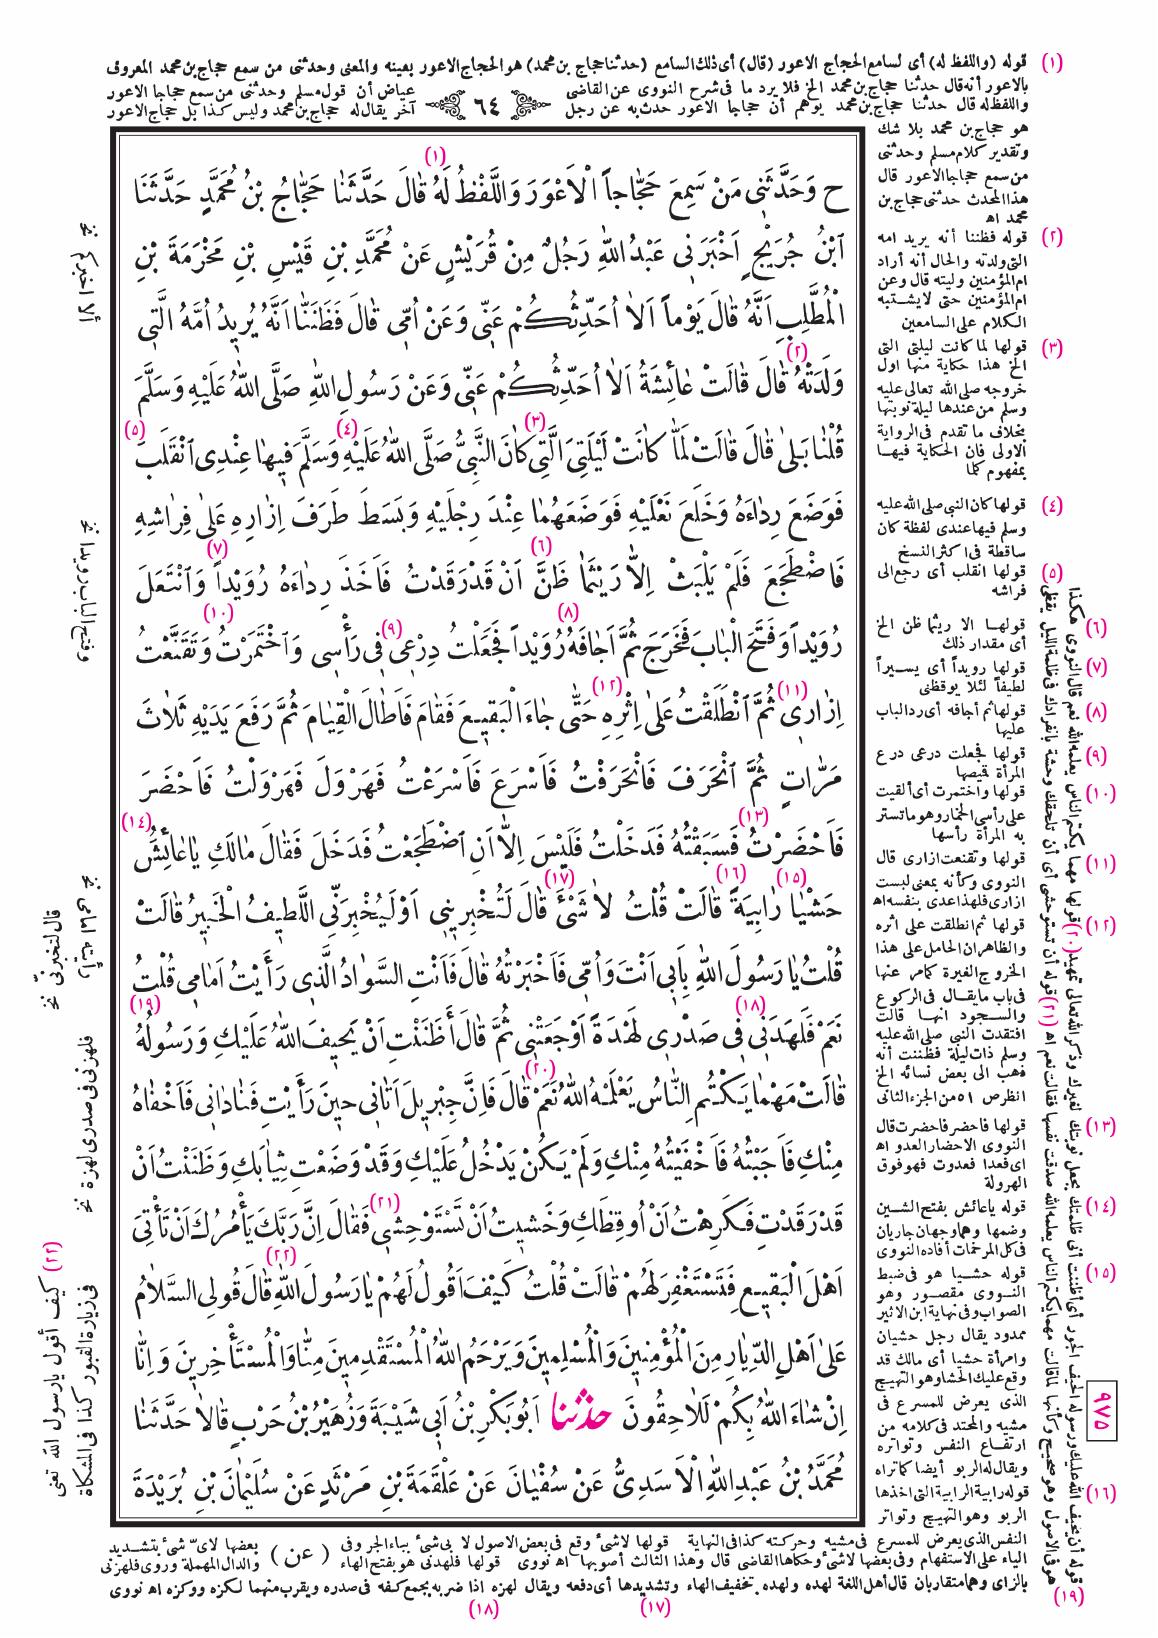 (١) قوله (واللفظ له) أى لسامع الحجاج الاعور (قال) أى ذلك السامع (حدثنا حجاج بن محمد) هو الحجاج الاعور بعينه والمعنى وحدثنى من سمع حجاج بن محمد المعروف
بالاعور أنه قال حدثنا حجاج بن محمد الخ فلا يرد ما فى شرح النووى عن القاضى عياض أن قول مسلم وحدثنى من سمع حجاجا الاعور
واللفظ له قال حدثنا حجاج بن محمد يوهم أن حجاجا الاعور حدث به عن رجل آخر يقال له حجاج بن محمد وليس كذا بل حجاج الاعور
٦٤
هو حجاج بن محمد بلا شك
وتقدير كلام مسلم وحدثنى
من سمع حجاجا الاعور قال
هذا المحدث حدثنى حجاج بن
محمد اه
(٢) قوله فظننا أنه يريد امه
التى ولدته والحال أنه أراد
ام المؤمنين وليته قال وعن
ام المؤمنين حتى لا يشتبه
الكلام على السامعين
(٣) قولها لما كانت ليلتى التى
الخ هذا حكاية منها اول
خروجه صلى الله تعالى عليه
وسلم من عندها ليلة نوبتها
بخلاف ما تقدم فى الرواية
الاولى فان الحكاية فيها
بمفهوم كلما
(٤) قولها كان النبى صلى الله عليه
وسلم فيها عندى لفظة كان
ساقطة فى اكثر النسخ
(٥) قولها انقلب أى رجع الى
فراشه
(٦) قولها الا ريثما ظن الخ
أى مقدار ذلك
(٧) قولها رويداً أى يسيراً
لطيفاً لئلا يوقظنى
(٨) قولها ثم أجافه أى رد الباب
عليها
(٩) قولها فجعلت درعى درع
المرأة قميصها
(١٠) قولها واختمرت أى ألقيت
على رأسى الخمار وهو ما تستر
به المرأة رأسها
(١١) قولها وتقنعت ازارى قال
النووى وكأنه بمعنى لبست
ازارى فلهذا عدى بنفسه اه
(١٢) قولها ثم انطلقت على اثره
والظاهر ان الحامل على هذا
الخروج الغيرة كما مر عنها
فى باب ما يقال فى الركوع
والسجود انها قالت
افتقدت النبى صلى الله عليه
وسلم ذات ليلة فظننت أنه
ذهب الى بعض نسائه الخ
انظر ص ٥١ من الجزء الثانى
(١٣) قولها فاحضر فاحضرت قال
النووى الاحضار العدو اه
اى فعدا فعدوت فهو فوق
الهرولة
(١٤) قوله يا عائش بفتح الشين
وضمها وهما وجهان جاريان
فى كل المرخمات أفاده النووى
(١٥) قوله حشيا هو فى ضبط
النووى مقصور وهو
الصواب وفى نهاية ابن الاثير
ممدود يقال رجل حشيان
وامرأة حشيا أى مالك قد
وقع عليك الحشا وهو التهيج
الذى يعرض للمسرع فى
مشيه والمحتد فى كلامه من
ارتفاع النفس وتواتره
ويقال له الربو أيضا كما تراه
(١٦) قوله رابية الرابية التى اخذها
الربو وهو التهيج وتواتر
ح وَحَدَّثَنِى مَنْ سَمِعَ حَجَّاجاً الْاَعْوَرَ وَاللَّفْظُ لَهُ (١) قَالَ حَدَّثَنَا حَجَّاجُ بْنُ مُحَمَّدٍ حَدَّثَنَا
ابْنُ جُرَيْجٍ اَخْبَرَنِى عَبْدُ اللّٰهِ رَجُلٌ مِنْ قُرَيْشٍ عَنْ مُحَمَّدِ بْنِ قَيْسِ بْنِ مَخْرَمَةَ بْنِ
الْمُطَّلِبِ اَنَّهُ قَالَ يَوْماً اَلاَ اُحَدِّثُكُمْ عَنِّى وَعَنْ اُمِّى قَالَ فَظَنَنَّا اَنَّهُ يُرِيدُ اُمَّهُ الَّتِى
وَلَدَتْهُ (٢) قَالَ قَالَتْ عَائِشَةُ اَلاَ اُحَدِّثُكُمْ عَنِّى وَعَنْ رَسُولِ اللّٰهِ صَلَّى اللّٰهُ عَلَيْهِ وَسَلَّمَ
قُلْنَا بَلىٰ قَالَ قَالَتْ لَمَّا كَانَتْ لَيْلَتِىَ الَّتِى (٣) كَانَ النَّبِىُّ صَلَّى اللّٰهُ عَلَيْهِ (٤) وَسَلَّمَ فِيهَا عِنْدِى انْقَلَبَ (٥)
فَوَضَعَ رِدَاءَهُ وَخَلَعَ نَعْلَيْهِ فَوَضَعَهُمَا عِنْدَ رِجْلَيْهِ وَبَسَطَ طَرَفَ اِزَارِهِ عَلىٰ فِرَاشِهِ
فَاضْطَجَعَ فَلَمْ يَلْبَثْ اِلاَّ رَيْثَمَا ظَنَّ (٦) اَنْ قَدْ رَقَدْتُ فَاَخَذَ رِدَاءَهُ رُوَيْداً (٧) وَانْتَعَلَ
رُوَيْداً وَفَتَحَ الْبَابَ فَخَرَجَ ثُمَّ اَجَافَهُ (٨) رُوَيْداً فَجَعَلْتُ دِرْعِى (٩) فِى رَأْسِى وَاخْتَمَرْتُ (١٠) وَتَقَنَّعْتُ
اِزَارِى (١١) ثُمَّ انْطَلَقْتُ عَلىٰ اِثْرِهِ (١٢) حَتَّى جَاءَ الْبَقِيعَ فَقَامَ فَاَطَالَ الْقِيَامَ ثُمَّ رَفَعَ يَدَيْهِ ثَلاَثَ
مَرَّاتٍ ثُمَّ انْحَرَفَ فَانْحَرَفْتُ فَاَسْرَعَ فَاَسْرَعْتُ فَهَرْوَلَ فَهَرْوَلْتُ فَاَحْضَرَ
فَاَحْضَرْتُ (١٣) فَسَبَقْتُهُ فَدَخَلْتُ فَلَيْسَ اِلاَّ اَنِ اضْطَجَعْتُ فَدَخَلَ فَقَالَ مَالَكِ يَا عَائِشُ (١٤)
حَشْيَا (١٥) رَابِيَةً (١٦) قَالَتْ قُلْتُ لاَ شَىْءَ (١٧) قَالَ لَتُخْبِرِينِى اَوْ لَيُخْبِرَنِّى اللَّطِيفُ الْخَبِيرُ قَالَتْ
قُلْتُ يَا رَسُولَ اللّٰهِ بِأَبِى اَنْتَ وَاُمِّى فَاَخْبَرْتُهُ قَالَ فَاَنْتِ السَّوَادُ الَّذِى رَأَيْتُ اَمَامِى قُلْتُ
نَعَمْ فَلَهَدَنِى (١٨) فِى صَدْرِى لَهْدَةً اَوْجَعَتْنِى ثُمَّ قَالَ أَظَنَنْتِ اَنْ يَحِيفَ اللّٰهُ عَلَيْكِ وَرَسُولُهُ (١٩)
قَالَتْ مَهْمَا يَكْتُمِ النَّاسُ يَعْلَمْهُ اللّٰهُ نَعَمْ (٢٠) قَالَ فَاِنَّ جِبْرِيلَ اَتَانِى حِينَ رَأَيْتِ فَنَادَانِى فَاَخْفَاهُ
مِنْكِ فَاَجَبْتُهُ فَاَخْفَيْتُهُ مِنْكِ وَلَمْ يَكُنْ يَدْخُلُ عَلَيْكِ وَقَدْ وَضَعْتِ ثِيَابَكِ وَظَنَنْتُ اَنْ
قَدْ رَقَدْتِ فَكَرِهْتُ اَنْ اُوقِظَكِ وَخَشِيتُ اَنْ تَسْتَوْحِشِى (٢١) فَقَالَ اِنَّ رَبَّكَ يَأْمُرُكَ اَنْ تَأْتِىَ
اَهْلَ الْبَقِيعِ فَتَسْتَغْفِرَ لَهُمْ قَالَتْ قُلْتُ كَيْفَ اَقُولُ لَهُمْ يَا رَسُولَ اللّٰهِ (٢٢) قَالَ قُولِى السَّلاَمُ
عَلىٰ اَهْلِ الدِّيَارِ مِنَ الْمُؤْمِنِينَ وَالْمُسْلِمِينَ وَيَرْحَمُ اللّٰهُ الْمُسْتَقْدِمِينَ مِنَّا وَالْمُسْتَأْخِرِينَ وَاِنَّا
اِنْ شَاءَ اللّٰهُ بِكُمْ لَلاَحِقُونَ حدثنا اَبُو بَكْرِ بْنُ اَبِى شَيْبَةَ وَزُهَيْرُ بْنُ حَرْبٍ قَالاَ حَدَّثَنَا
مُحَمَّدُ بْنُ عَبْدِ اللّٰهِ الْاَسَدِىُّ عَنْ سُفْيَانَ عَنْ عَلْقَمَةَ بْنِ مَرْثَدٍ عَنْ سُلَيْمَانَ بْنِ بُرَيْدَةَ
ألا اخبركم نخ
وفتح الباب رويدا نخ
قال لتخبرنى نخ
فلهزنى فى صدرى لهزة نخ
(٢٢) كيف أقول يا رسول الله تعنى
فى زيارة القبور كذا فى المشكاة
هكذا
(٢٠) قولها مهما يكتم الناس يعلمه الله نعم قال النووى
(٢١) قوله أن تستوحشى أى أن تلحقك وحشة بانفرادك فى ظلمة الليل
(١٩) قوله أن يحيف الله عليك ورسوله الحيف الجور
هو فى الاصول وهو صحيح وكأنها لما قالت مهما يكتم الناس يعلمه الله صدقت نفسها فقالت نعم اه
٩٧٥
النفس الذى يعرض للمسرع فى مشيه وحركته كذا فى النهاية (١٧) قولها لا شئ وقع فى بعض الاصول لا بى شئ بباء الجر وفى بعضها لاى شئ بتشديد
الياء على الاستفهام وفى بعضها لا شئ وحكاها القاضى قال وهذا الثالث أصوبها اه نووى (١٨) قولها فلهدنى هو بفتح الهاء والدال المهملة وروى فلهزنى
( عن )
بالزاى وهما متقاربان قال أهل اللغة لهده ولهده بتخفيف الهاء وتشديدها أى دفعه ويقال لهزه اذا ضربه بجمع كفه فى صدره ويقرب منهما لكزه ووكزه اه نووى